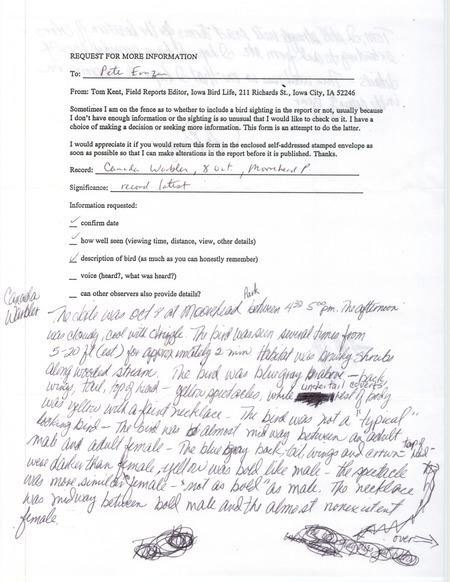 REQUEST FOR MORE INFORMATION
To: Pete
From: Tom Kent, Field Reports Editor, Iowa Bird Life, 211 Richards St., Iowa City, IA 52246
Sometimes I am on the fence as to whether to include a bird sighting in the report or not, usually because
I don't have enough information or the sighting is so unusual that I would like to check on it. I have a
choice of making a decision or seeking more information. This form is an attempt to do the latter.
I would appreciate it if you would return this form in the enclosed self-addressed stamped envelope as
soon as possible so that I can make alterations in the report before it is published. Thanks.
Record: Canada Warbler, 8 Oct, Moorhead P
Significance: record latest
Information requested:
✓ confirm date
✓ how well seen (viewing time, distance, view, other details)
✓ description of bird (as much as you can honestly remember)
voice (heard?, what was heard?)
can other observers also provide details?
Canada
Warbler
Park
The date was Oct 8 at Moorhead between 4:30 5:00 pm. The afternoon
was cloudy, cool with drizzle. The bird was seen several times from
5-20 ft (est) for approximately 2 min Habitat was brushy shrubs
along wooded stream. The bird was bluegray above - back,
wings, tail, top of head - yellow spectacles, white undertail coverts, rest of body
was yellow with a faint necklace - The bird was not a "typical"
looking bird - The bird was almost midway between an adult
male and adult female - The bluegray back, tail, wings and crown top of head -
were darker than female, yellow was bold like male - the spectacle
was more similar female - "not as bold" as male. The necklace
was midway between bold male and the almost nonexistent
female.
over →